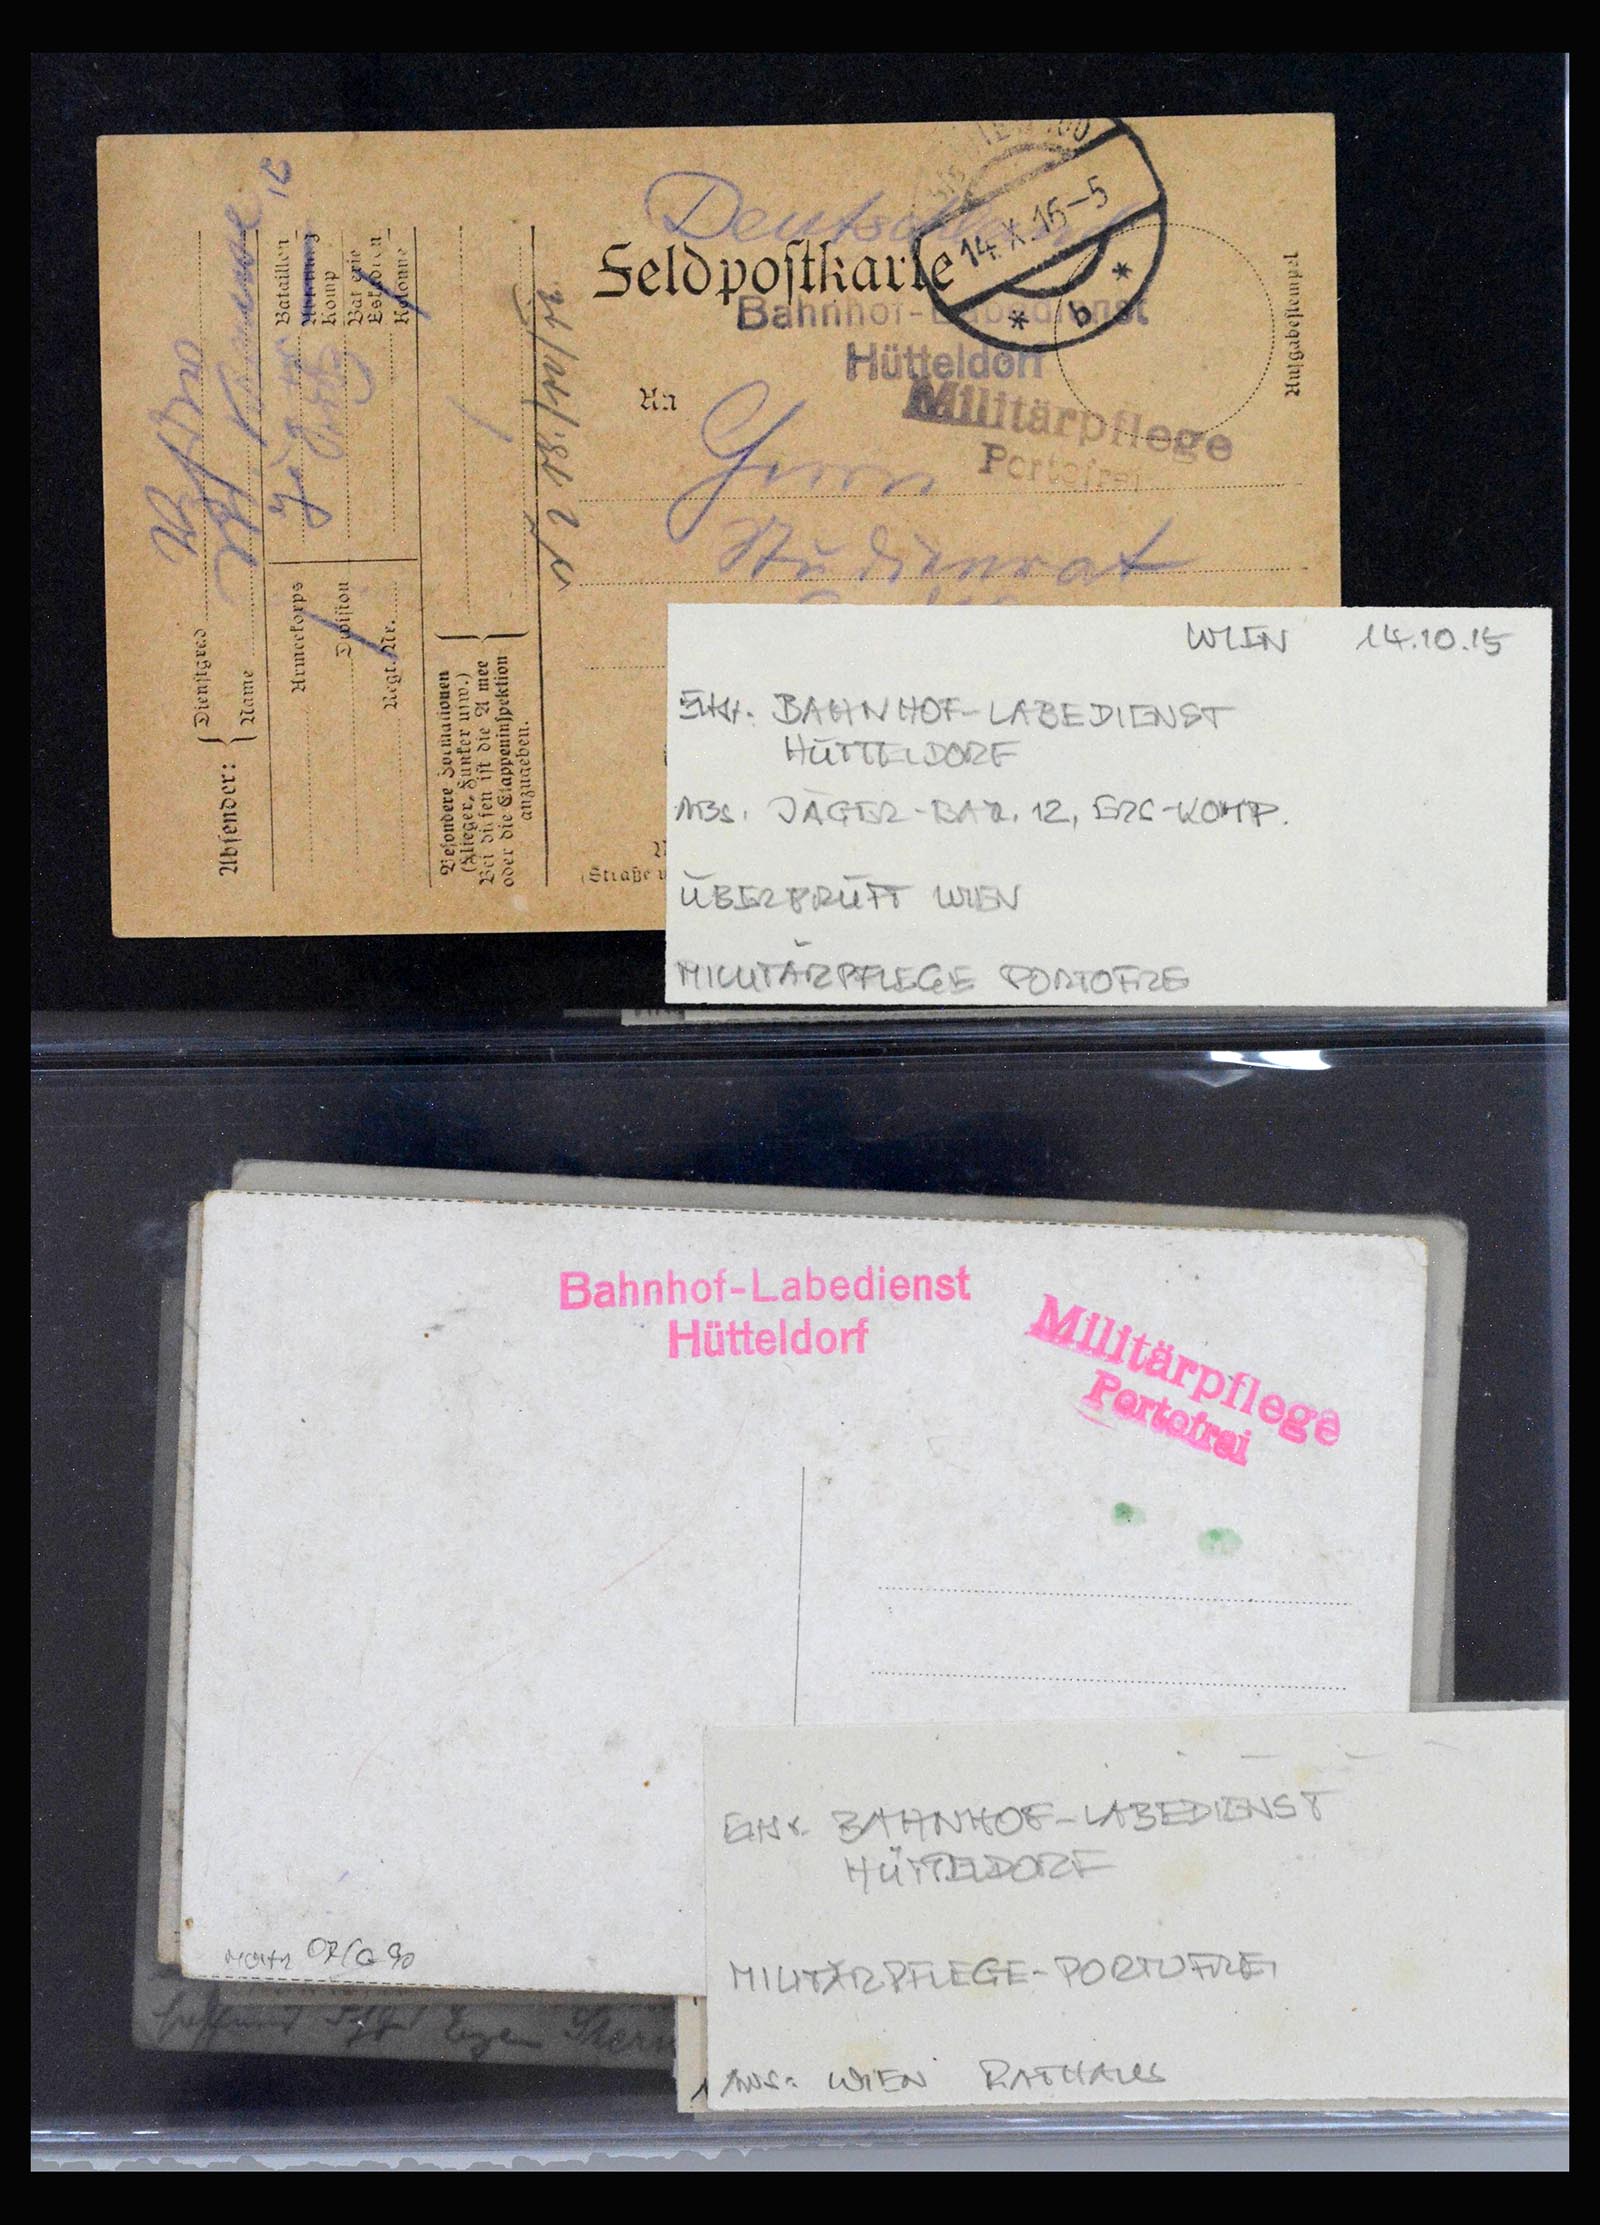 Deutschland
Feldpostkarte
14.X.15-5
* b *
Bahnhof-Labedienst
Hütteldorf
Militärpflege
Portofrei
Ausgabestempel
An
Herrn
Studienrat
(Straße u
Absender:
Dienstgrad
Name
Bataillon
Abteilung
Komp
Batterie
Eskadron
Kolonne
Armeekorps
Division
Regt. Nr.
Besondere Formationen
(Flieger, Funker usw.)
Bei diesen ist die Armee
oder die Etappeninspektion
anzugeben.
WIEN 14.10.15
BAHNHOF-LABEDIENST
HÜTTELDORF
ABS. JÄGER-BAT. 12, ERS-KOMP.
ÜBERPRÜFT WIEN
MILITÄRPFLEGE PORTOFRE
Bahnhof-Labedienst
Hütteldorf
Militärpflege
Portofrei
BAHNHOF-LABEDIENST
HÜTTELDORF
MILITÄRPFLEGE-PORTOFREI
ANS: WIEN RATHAUS